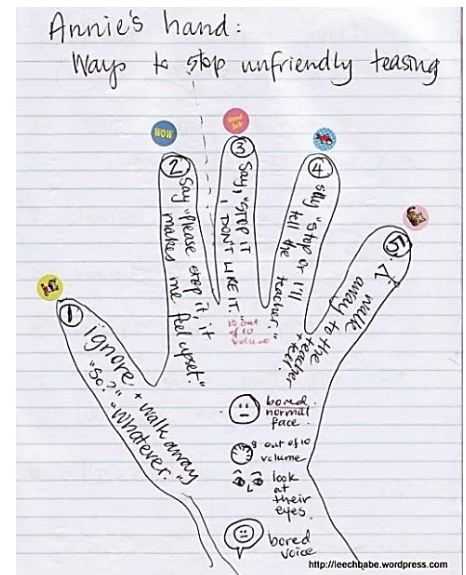 Annie's hand:
Ways to stop unfriendly teasing
WOW
Good
Job
① ignore + walk away
"So?" "Whatever."
② Say "Please stop it, it
makes me feel upset."
③ Say, "STOP IT
I DON'T LIKE IT."
10 out
of 10
volume
④ Say "stop or I'll
tell the teacher."
⑤ walk
away to the
teacher
+ tell.
bored
normal
face.
8 out of 10
volume
look
at
their
eyes.
bored
voice
http://leechbabe.wordpress.com